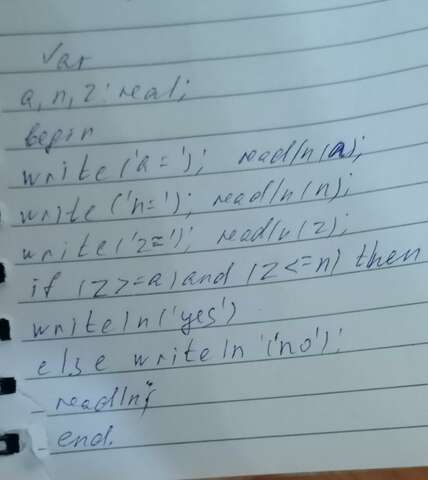 Var
a, n, z: real;
begin
write('a='); readln(a);
write('n='); readln(n);
write('z='); readln(z);
if (z>=a) and (z<=n) then
writeln('yes')
else writeln ('no');
readln;
end.